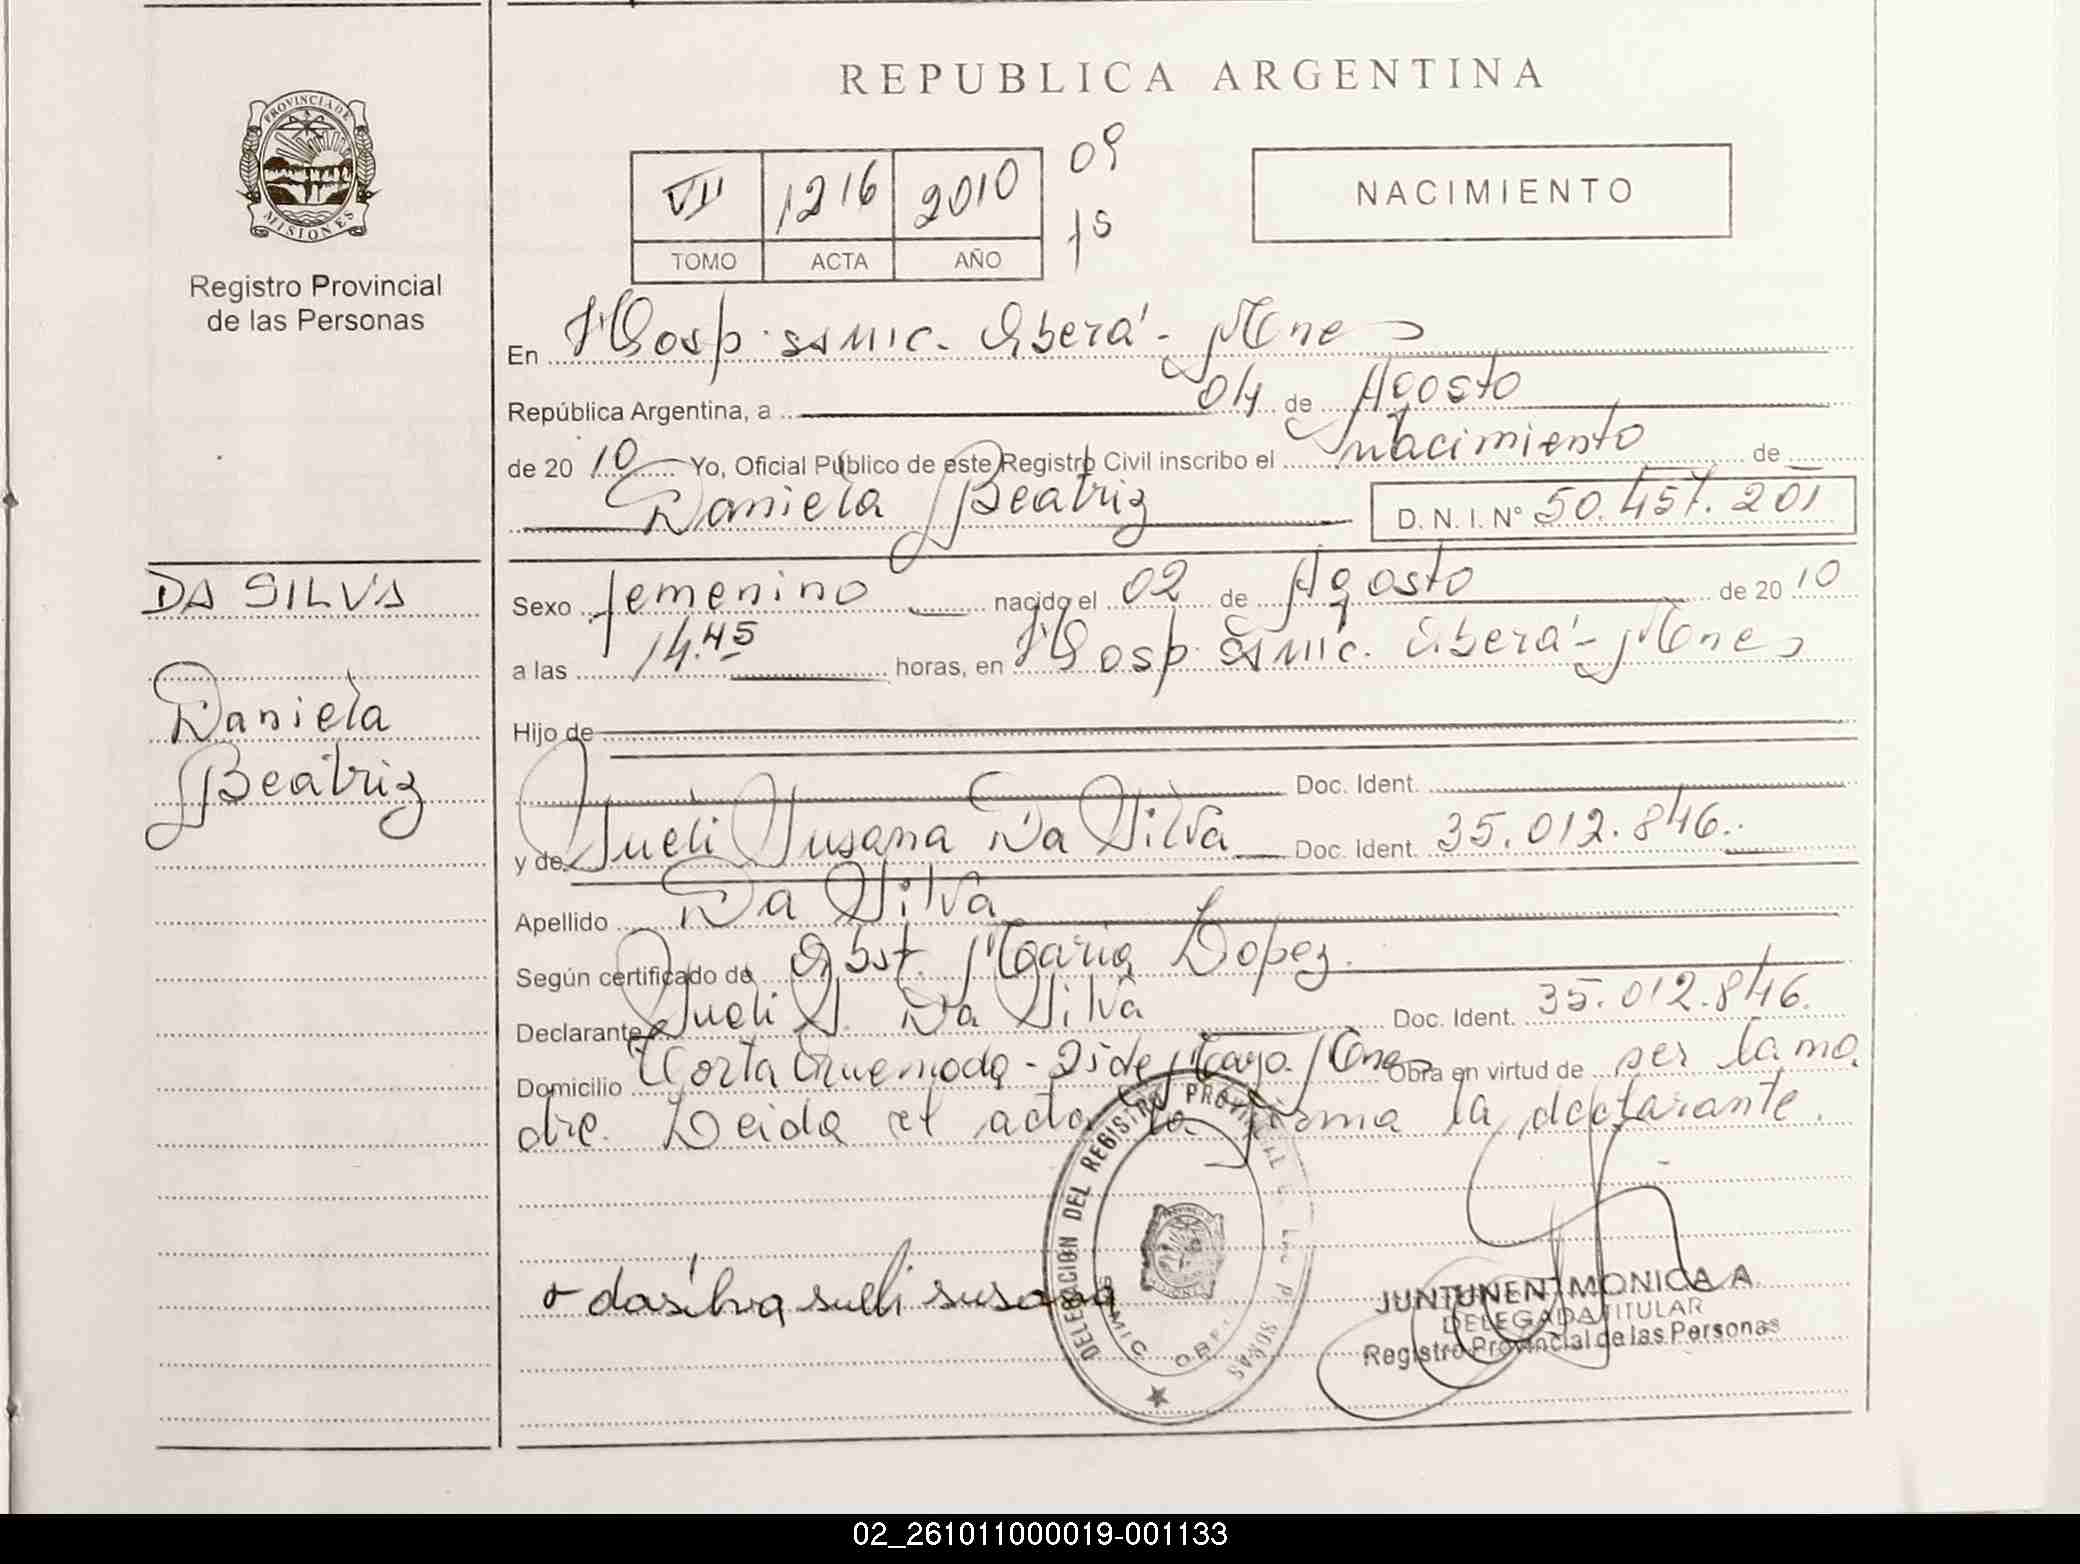 REPUBLICA ARGENTINA
PROVINCIA DE MISIONES
Registro Provincial
de las Personas
VII 1216 2010 09
TOMO ACTA AÑO 15
NACIMIENTO
En Hosp. SAMIC. Oberá - Mnes
República Argentina, a 04 de Agosto
de 20 10 Yo, Oficial Público de este Registro Civil inscribo el nacimiento de
Daniela Beatriz D.N.I. N° 50.457.201
DA SILVA
Daniela
Beatriz
Sexo femenino nacido el 02 de Agosto de 20 10
a las 14.45 horas, en Hosp. SAMIC. Oberá - Mnes
Hijo de
Doc. Ident.
y de Sueli Susana Da Silva Doc. Ident. 35.012.846.
Apellido Da Silva
Según certificado de Obst. Maria Lopez.
Declarante Sueli S. Da Silva Doc. Ident. 35.012.846.
Domicilio Corta - 25 de Mayo. Mnes Obra en virtud de ser la ma
dre. Leida el acta la firma la declarante.
dasilva sueli susana
DELEGACION DEL REGISTRO PROVINCIAL
JUNTUNEN MONICA A
DELEGADA TITULAR
Registro Provincial de las Personas
02_261011000019-001133